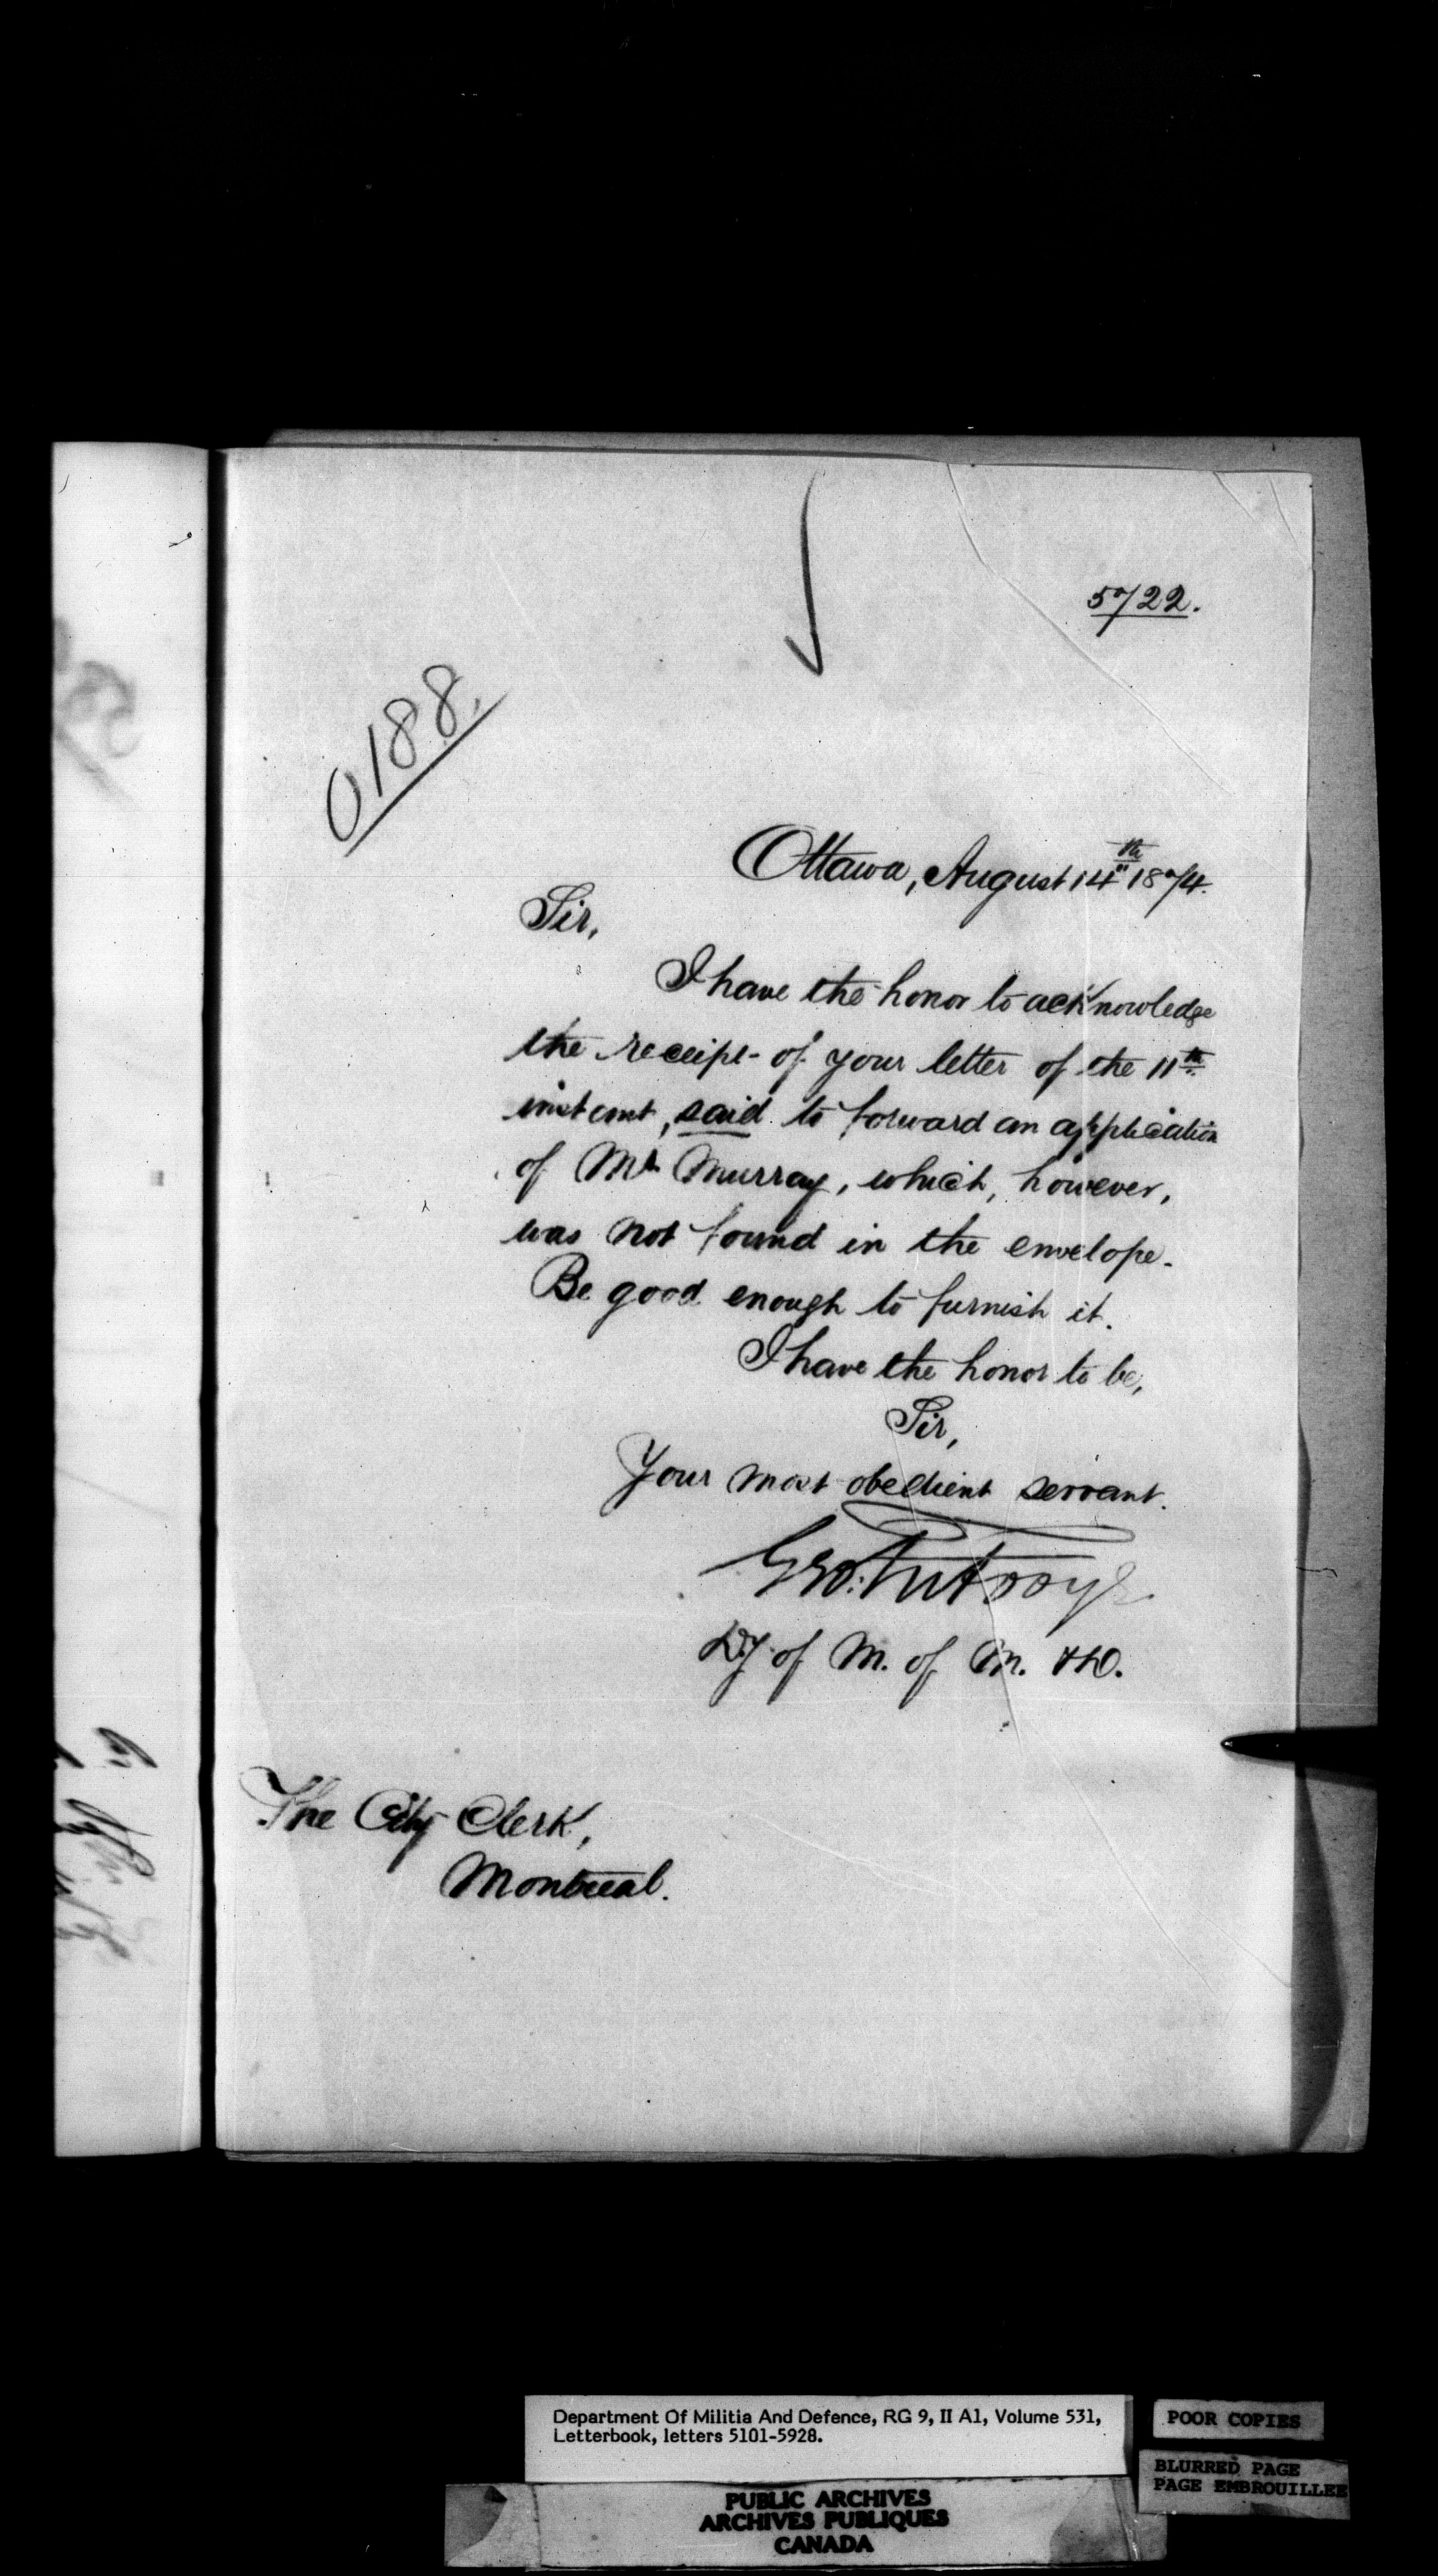 5722.
0188.
Ottawa, August 14th 1874.
Sir,
I have the honor to acknowledge
the receipt of your letter of the 11th
instant, said to forward an application
of Mr Murray, which, however,
was not found in the envelope.
Be good enough to furnish it.
I have the honor to be,
Sir,
Your most obedient servant.
Geo: Futvoye
Dy of M. of M. & D.
The City Clerk,
Montreal.
Department Of Militia And Defence, RG 9, II A1, Volume 531,
Letterbook, letters 5101-5928.
POOR COPIES
BLURRED PAGE
PAGE EMBROUILLEE
PUBLIC ARCHIVES
ARCHIVES PUBLIQUES
CANADA